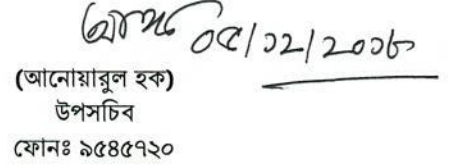 ০৫/১২/২০১৮
(আনোয়ারুল হক)
উপসচিব
ফোনঃ ৯৫৪৫৭২০